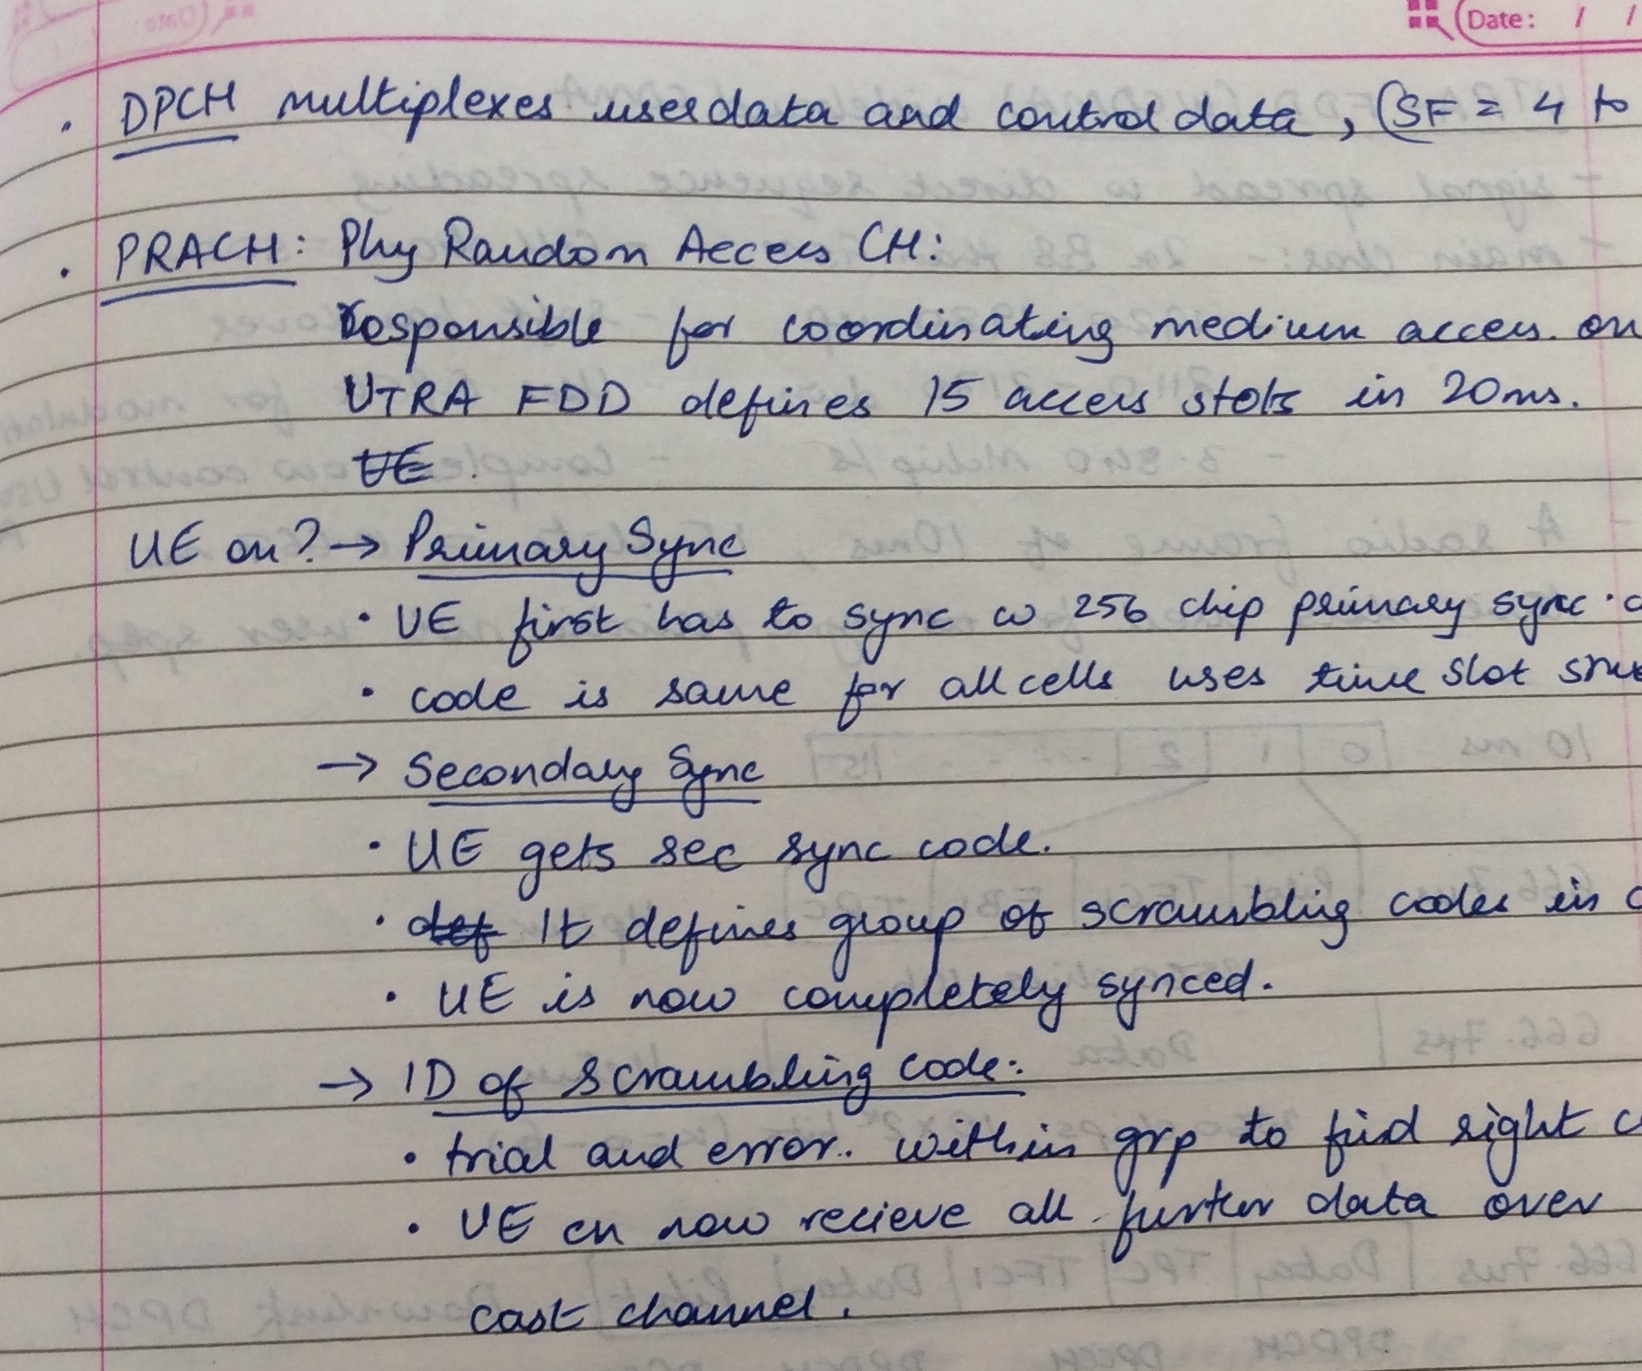 Date: / /
. DPCH multiplexes userdata and control data, (SF = 4 to
. PRACH: Phy Random Access CH:
responsible for coordinating medium access. on
UTRA FDD defines 15 access slots in 20ms.
UE.
UE on? → Primary Sync
• UE first has to sync w 256 chip primary sync.
• code is same for all cells uses time slot
→ Secondary Sync
• UE gets sec sync code.
• def It defines group of scrambling codes in
• UE is now completely synced.
→ ID of scrambling code:
• trial and error.. within grp to find right
• UE cn now recieve all further data over
cast channel.